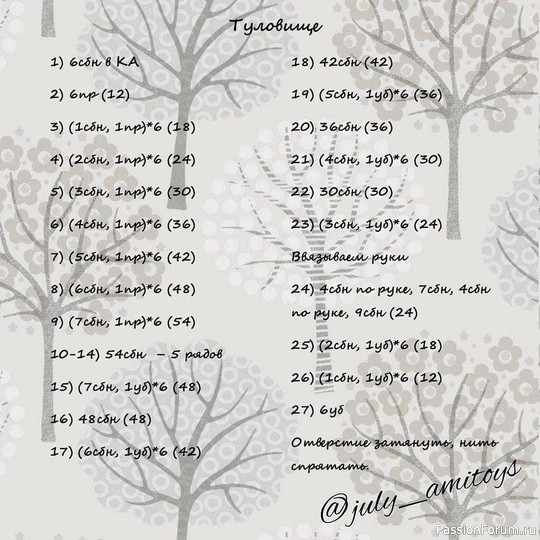 Туловище
1) 6сбн в КА
2) 6пр (12)
3) (1сбн, 1пр)*6 (18)
4) (2сбн, 1пр)*6 (24)
5) (3сбн, 1пр)*6 (30)
6) (4сбн, 1пр)*6 (36)
7) (5сбн, 1пр)*6 (42)
8) (6сбн, 1пр)*6 (48)
9) (7сбн, 1пр)*6 (54)
10-14) 54сбн – 5 рядов
15) (7сбн, 1уб)*6 (48)
16) 48сбн (48)
17) (6сбн, 1уб)*6 (42)
18) 42сбн (42)
19) (5сбн, 1уб)*6 (36)
20) 36сбн (36)
21) (4сбн, 1уб)*6 (30)
22) 30сбн (30)
23) (3сбн, 1уб)*6 (24)
Ввязываем руки
24) 4сбн по руке, 7сбн, 4сбн
по руке, 9сбн (24)
25) (2сбн, 1уб)*6 (18)
26) (1сбн, 1уб)*6 (12)
27) 6уб
Отверстие затянуть, нить
спрятать.
@july_amitoys
PassionForum.ru